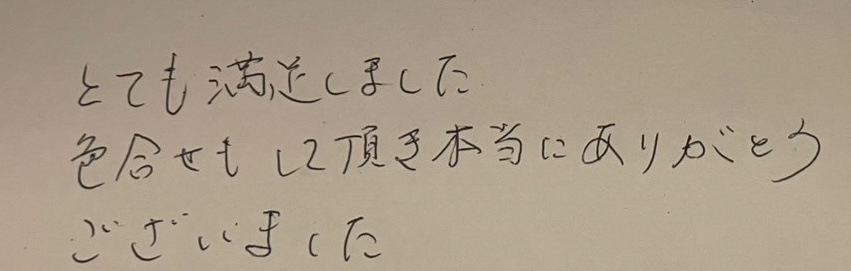 とても満足しました
色合せもして頂き本当にありがとう
ございました